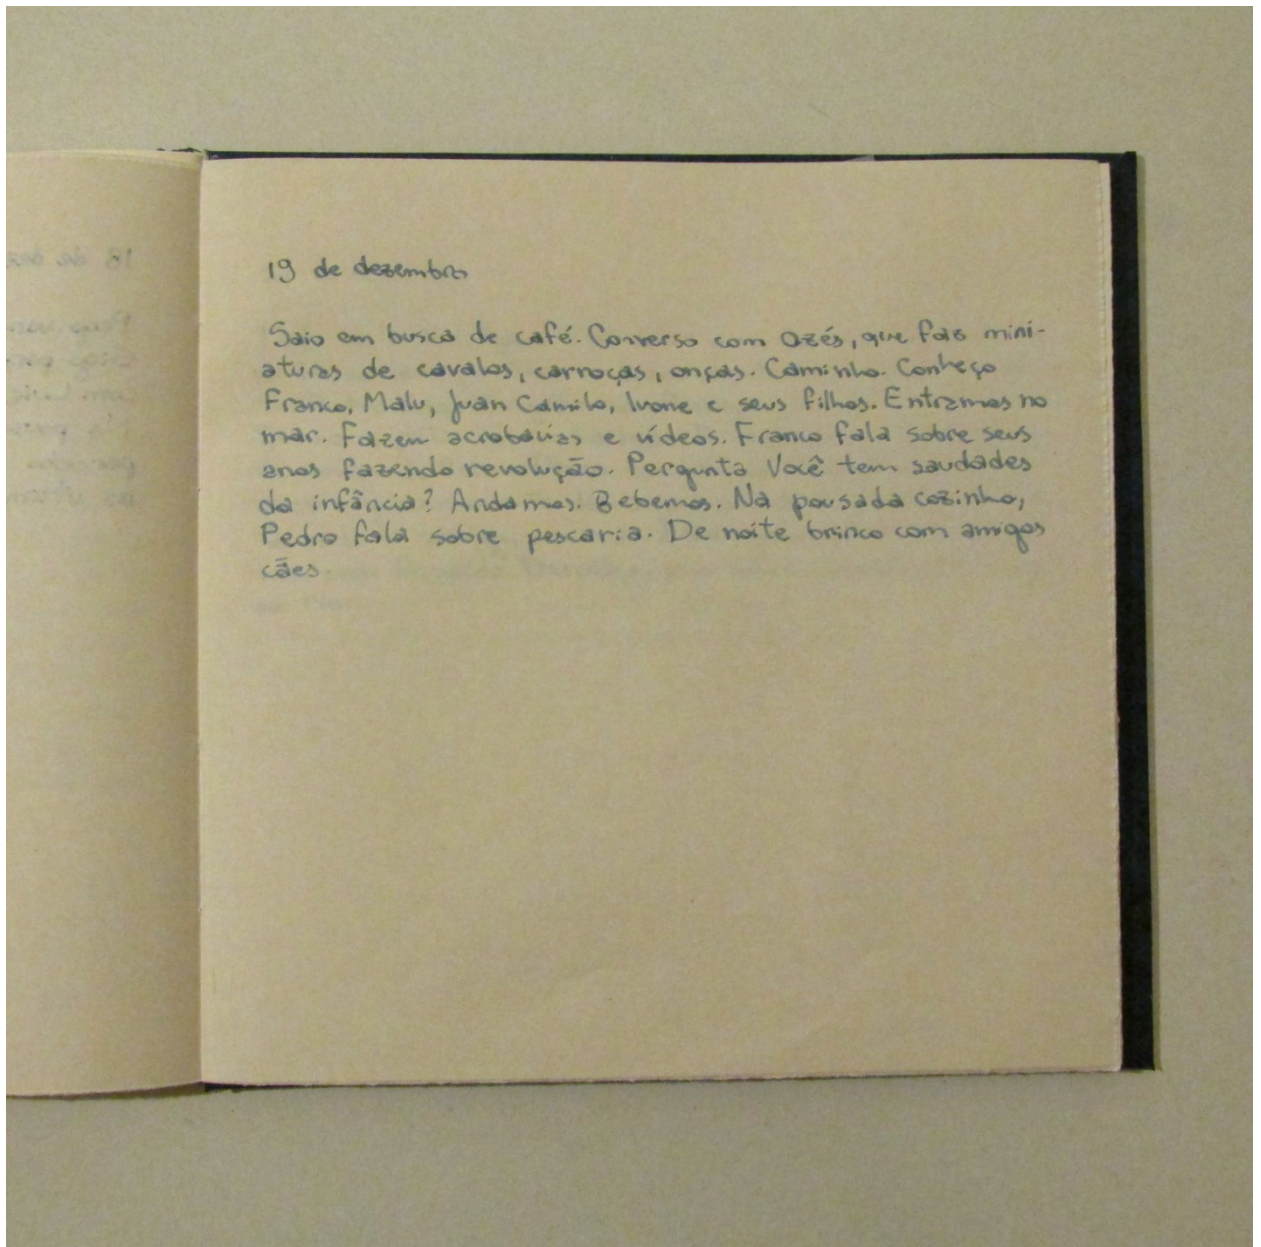 19 de dezembro
Saio em busca de café. Converso com Ozés, que faz mini-
aturas de cavalos, carroças, onças. Caminho. Conheço
Franco, Malu, Juan Camilo, Ivone e seus filhos. Entramos no
mar. Fazem acrobacias e vídeos. Franco fala sobre seus
anos fazendo revolução. Pergunta Você tem saudades
da infância? Andamos. Bebemos. Na pousada cozinho,
Pedro fala sobre pescaria. De noite brinco com amigos
cães.